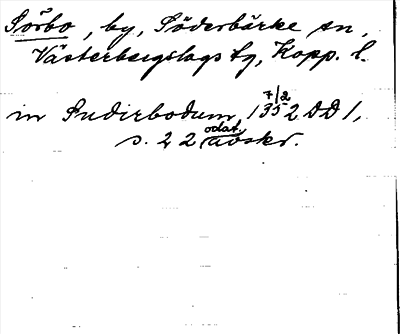 Sörbo, by, Söderbärke sn,
Västerbergslags tg, Kopp. l.
in Sudirbodum, 7/2 1352 DD 1,
s. 22 odat. avskr.